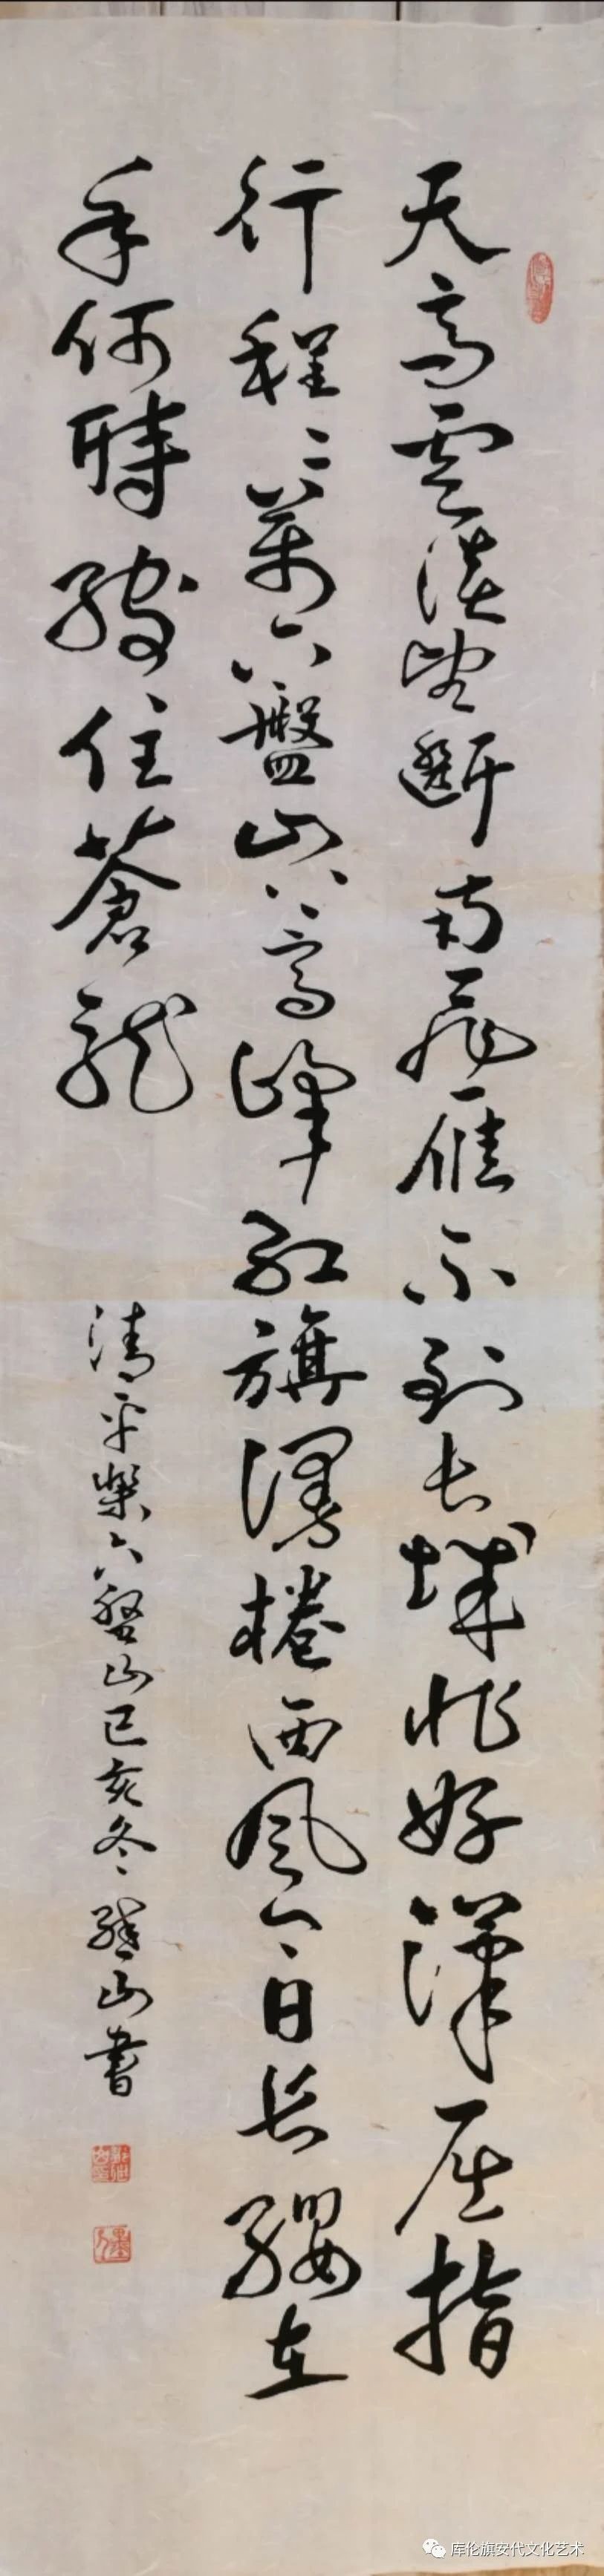 天高雲淡望斷南飛雁不到長城非好漢屈指
行程二萬六盤山上高峰紅旗漫捲西風今日長纓在
手何時縛住蒼龍
清平樂六盤山己亥冬繼山書
库伦旗安代文化艺术